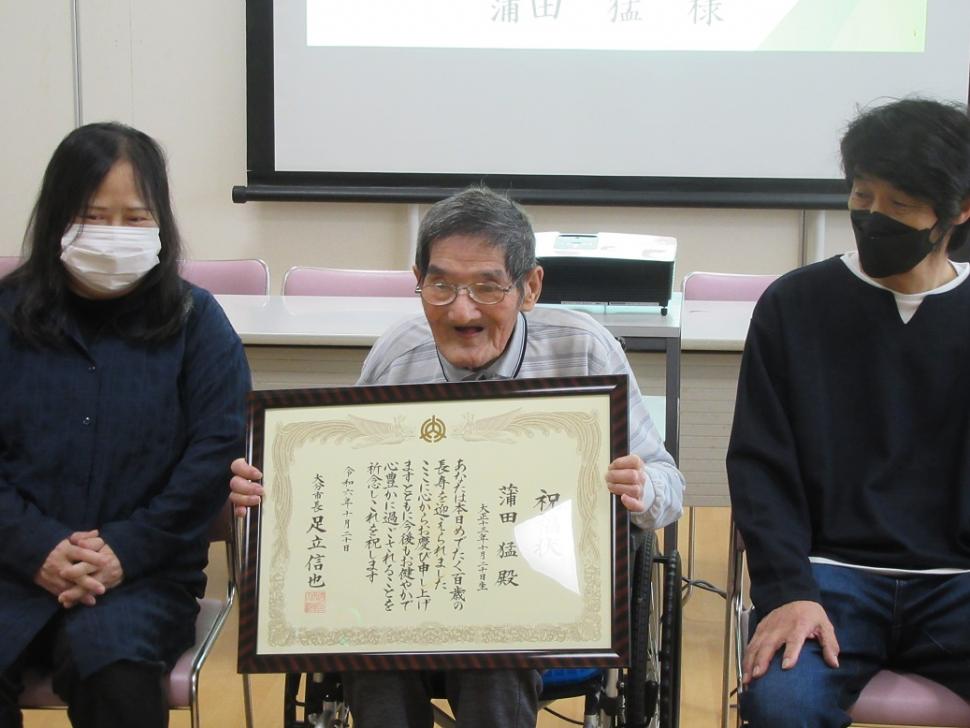 蒲田　猛　様
祝　状
蒲田　猛　殿
大正十三年十月二十日生
あなたは本日めでたく百歳の
長寿を迎えられました
ここに心からお慶び申し上げ
ますとともに今後もお健やかで
心豊かに過ごされることを
祈念しこれを祝します
令和六年十月二十日
大分市長　足立信也